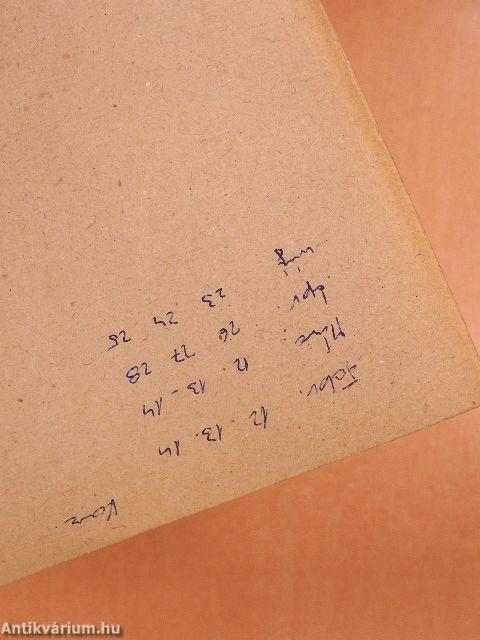 Febr. 12. 13. 14
Márc. 12. 13-14
Ápr. 26 27 28
Máj 23 24 25
Antikvárium.hu